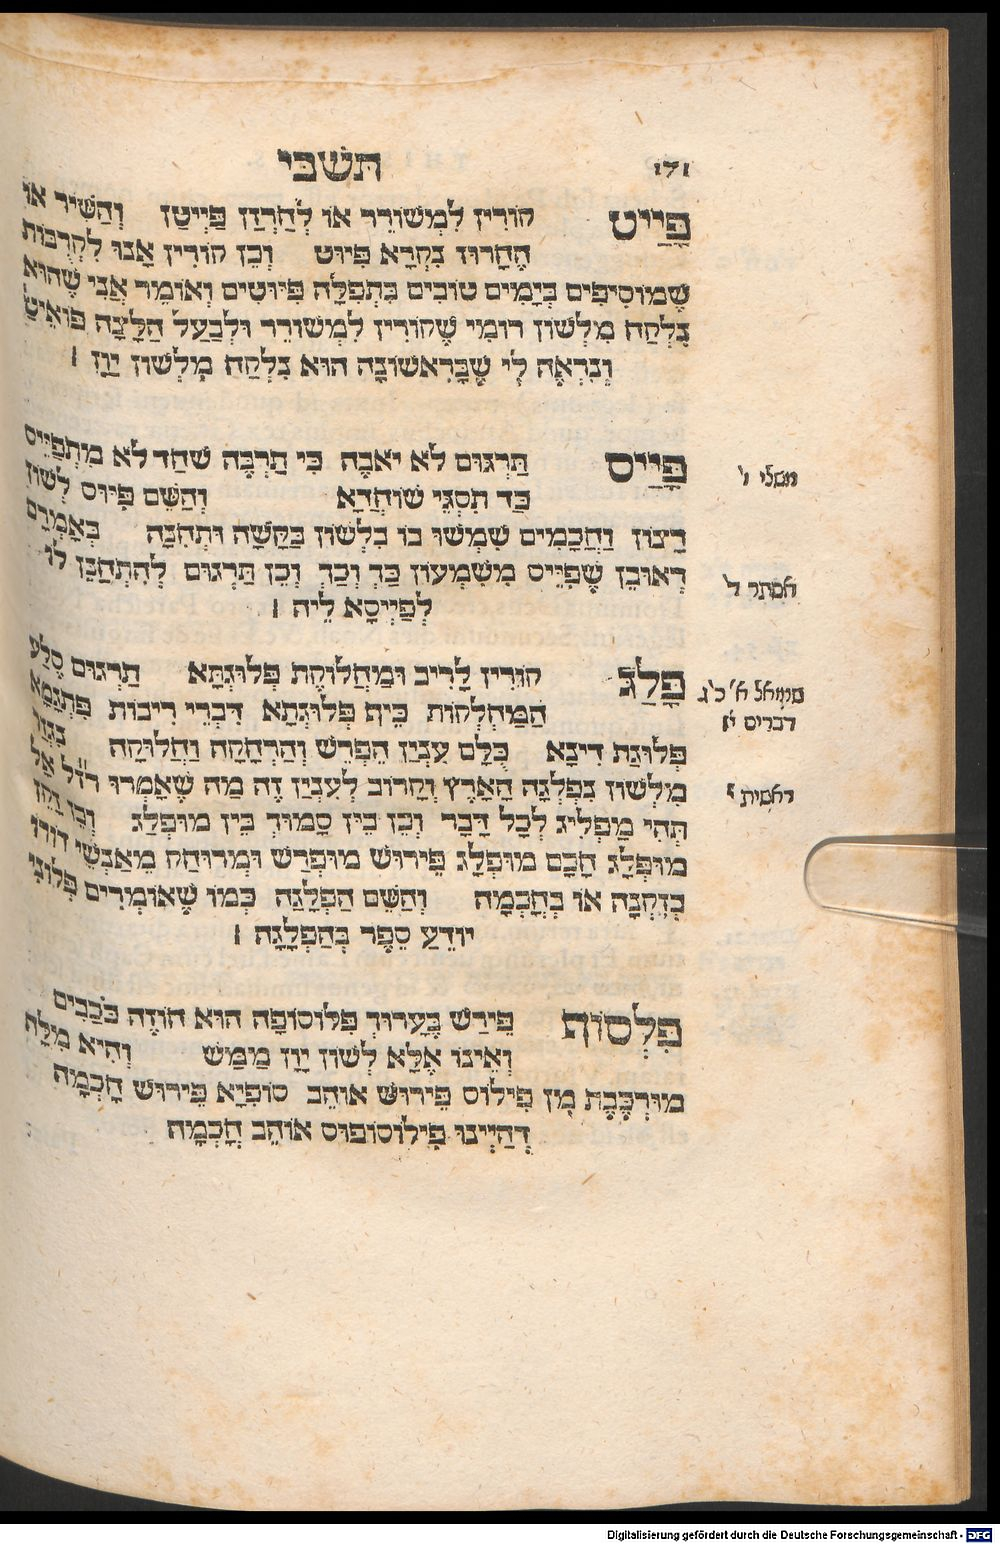 171
תשבי
פָּיַיט קורין לִמְשׁוֹרֵר אוֹ לְחַרְזַן פַּיְיטַן וְהַשִּׁיר אוֹ
הֶחָרוּז נִקְרָא פִּיוּט וְכֵן קורין אָנוּ לִקְרֻבוֹת
שֶׁמוֹסִיפִים בְּיָמִים טוֹבִים בִּתְפִלָּה פִּיּוּטִים וְאוֹמֵר אֲנִי שֶׁהוּא
נִלְקַח מִלְּשׁוֹן רוֹמִי שֶׁקּוֹרִין לִמְשׁוֹרֵר וּלְבַעַל הַלָּצָה פּוֹאֵיטַ
וְנִרְאֶה לִי שֶׁבָּרִאשׁוֹנָה הוּא נִלְקַח מִלְּשׁוֹן יָוָן ׀
משלי ו'
פָּיַיס תַּרְגּוּם לֹא יֹאבֶה כִּי תַרְבֶּה שֹׁחַד לֹא מִתְפַּיֵּיס
כַּד תִּסְגֵּי שׁוֹחֲדָא וְהַשֵּׁם פִּיּוּס לְשׁוֹן
רָצוֹן וַחֲכָמִים שִׁמְּשׁוּ בוֹ בִּלְשׁוֹן בַּקָּשָׁה וּתְחִנָּה בְּאָמְרָם
רְאוּבֵן שֶׁפִּיֵּיס מִשִּׁמְעוֹן כַּךְ וְכַךְ וְכֵן תַּרְגּוּם לְהִתְחַנֵּן לוֹ
אסתר ד'
לְפַיְיסָא לֵיהּ ׀
פָּלַג קוֹרִין לָרִיב וּמַחֲלוֹקֶת פְּלוּגְתָּא תַּרְגּוּם סֶלַע
שמואל א' כ'ג
הַמַּחְלְקוֹת כֵּיף פְּלוּגְתָא דִּבְרֵי רִיבוֹת פִּתְגָמָא
דברים א'
פְּלוּגַת דִּינָא כֻּלָּם עִנְיַן הֶפְרֵשׁ וְהַרְחָקָה וַחֲלוּקָה נִגְזָר
מִלְּשׁוֹן נִפְלְגָה הָאָרֶץ וְקָרוֹב לְעִנְיַן זֶה מַה שֶׁאָמְרוּ ר״זל אַל
ראשית י'
תְּהִי מַפְלִיג לְכָל דָּבָר וְכֵן בֵּין סָמוּךְ בֵּין מוּפְלָג וְכֵן זָקֵן
מוּפְלָג חָכָם מוּפְלָג פֵּירוּשׁ מוּפְרָשׁ וּמְרוּחָק מֵאַנְשֵׁי דוֹרוֹ
בְּזִקְנָה אוֹ בְּחָכְמָה וְהַשֵּׁם הַפְלָגָה כְּמוֹ שֶׁאוֹמְרִים פְּלוֹנִי
יוֹדֵעַ סֵפֶר בְּהַפְלָגָה ׀
פִּלְסוֹף פֵּירַשׁ בֶּעָרוּךְ פִּלוֹסוֹפָה הוּא חוֹזֶה כֹּכָבִים
וְאֵינוֹ אֶלָּא לְשׁוֹן יָוָן מַמָּשׁ וְהִיא מִלָּה
מוּרְכֶּבֶת מִן פִילוֹס פֵּירוּשׁ אוֹהֵב סוֹפִיָא פֵּירוּשׁ חָכְמָה
דְּהַיְינוּ פִּילוֹסוֹפוֹס אוֹהֵב חָכְמָה
Digitalisierung gefördert durch die Deutsche Forschungsgemeinschaft - DFG